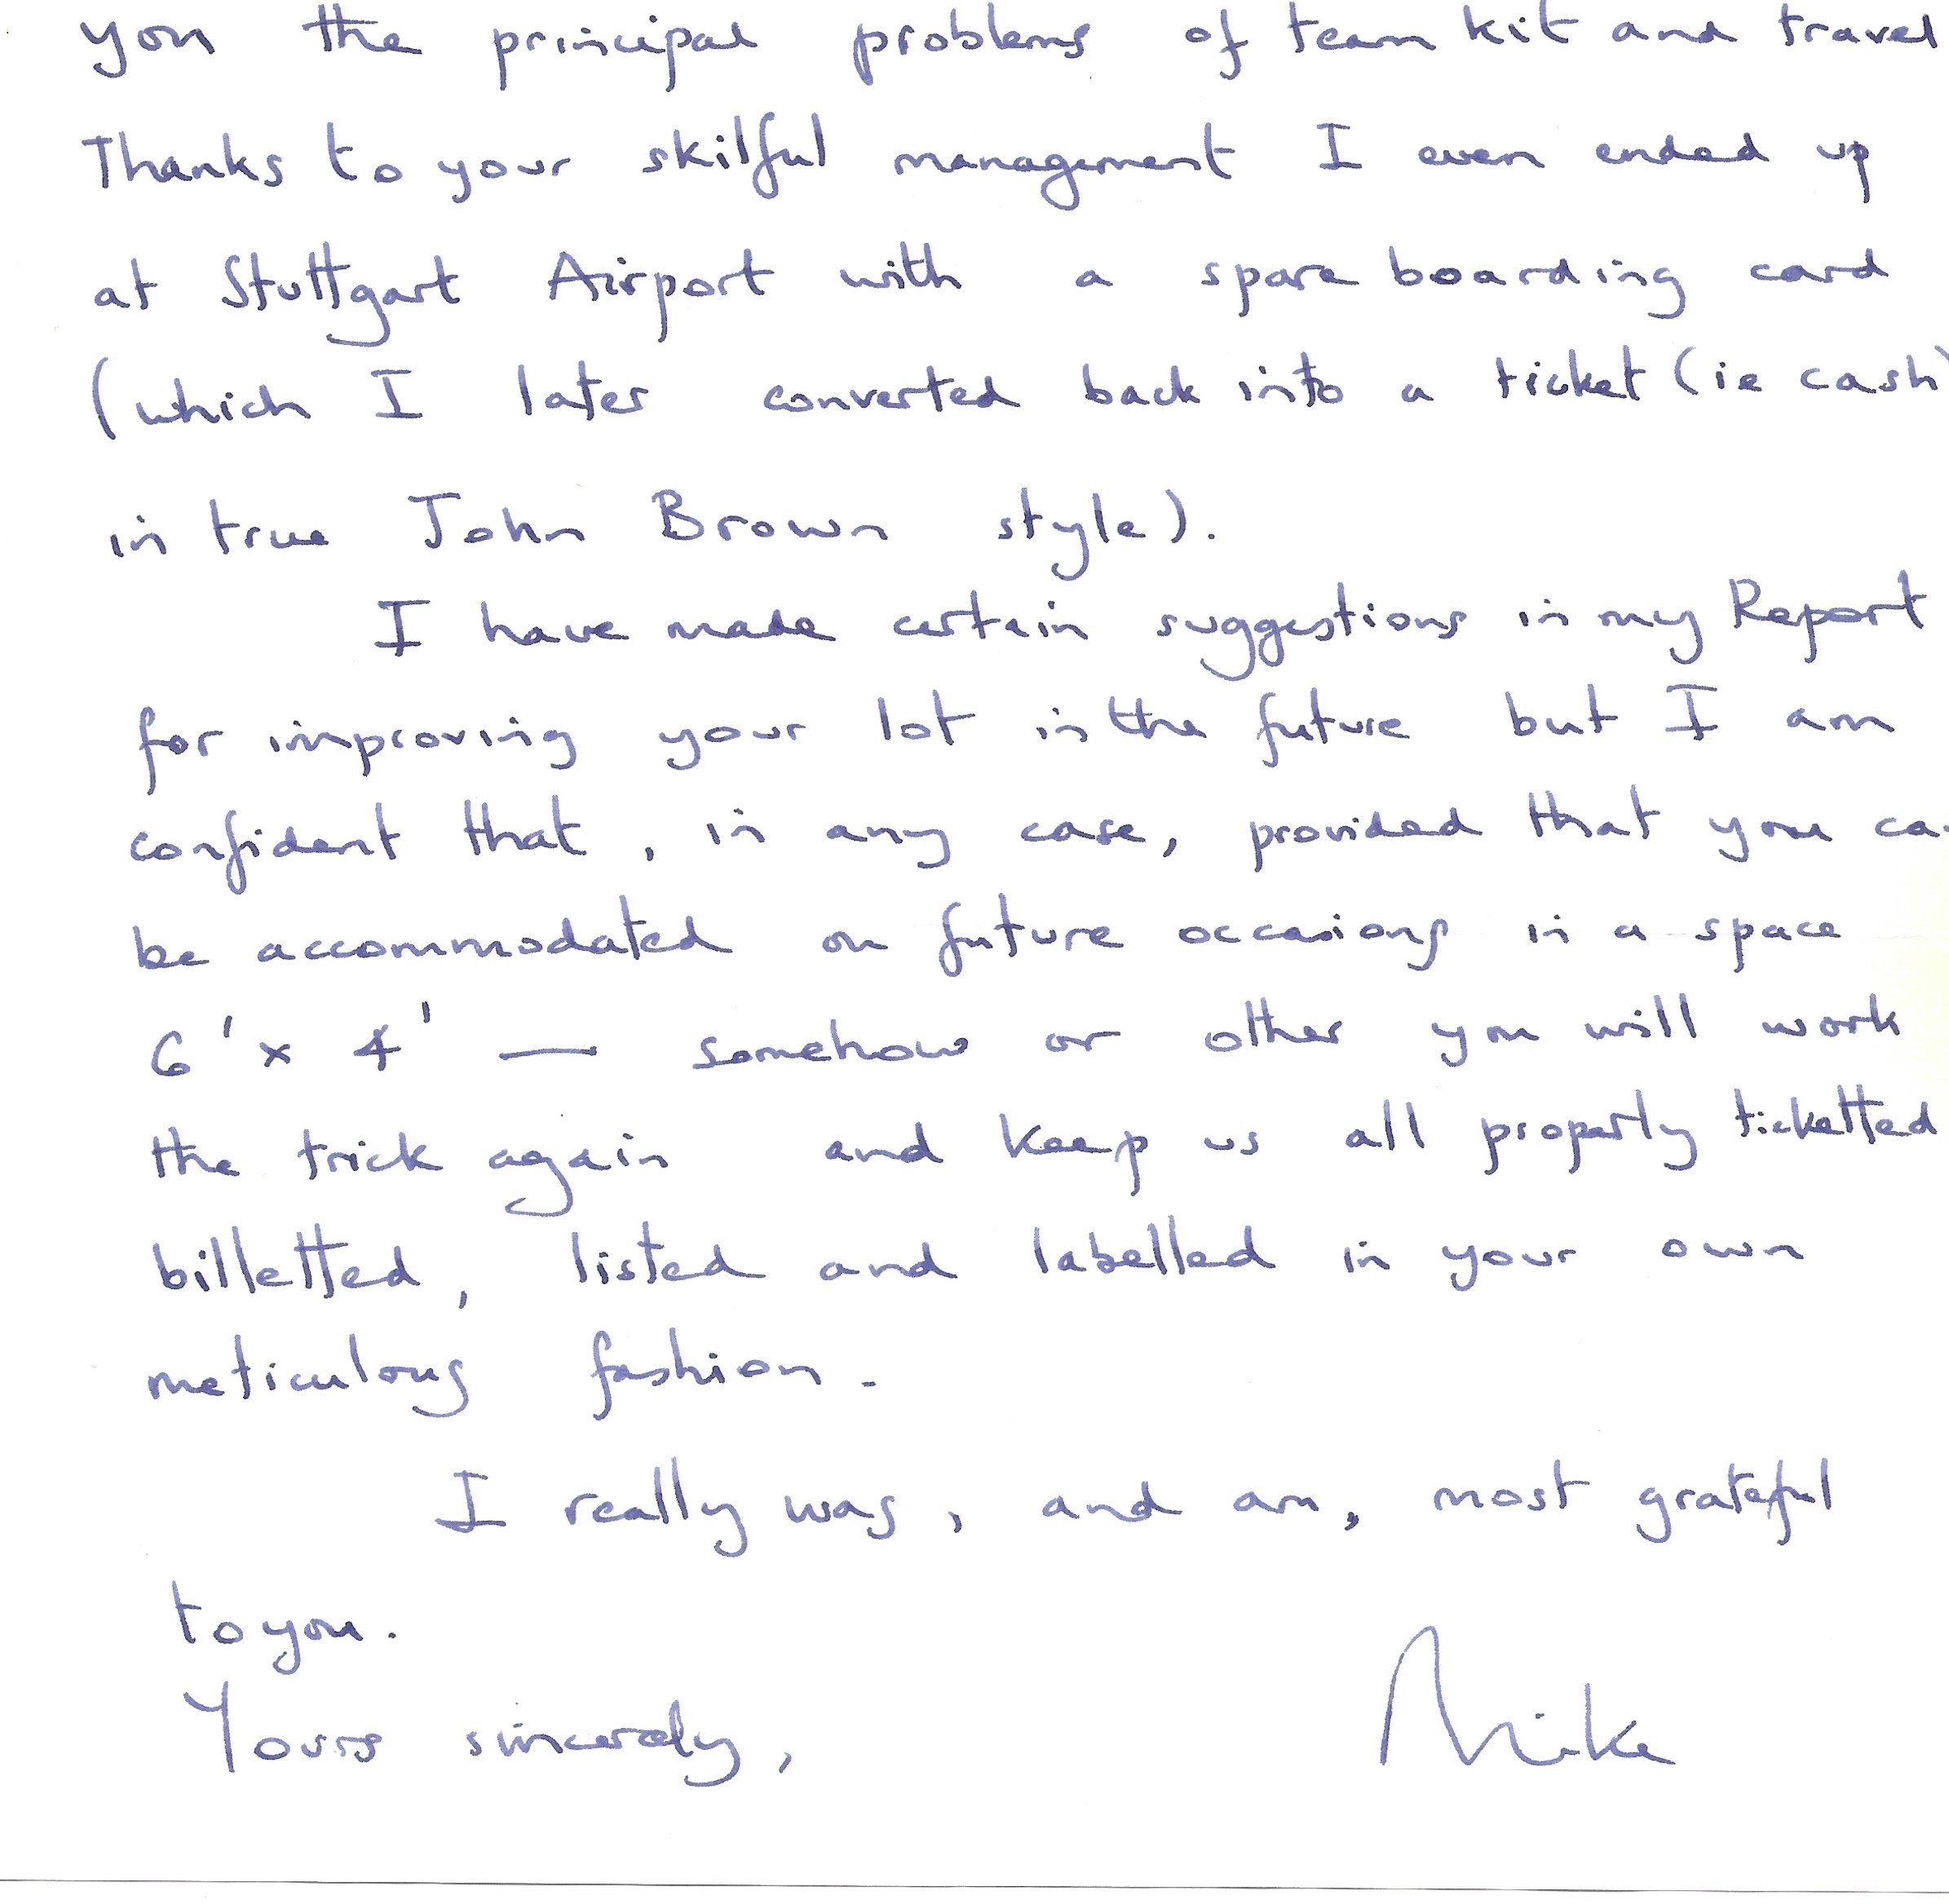 you the principal problems of team kit and travel
Thanks to your skilful management I even ended up
at Stuttgart Airport with a spare boarding card
(which I later converted back into a ticket (ie cash)
in true John Brown style).
I have made certain suggestions in my Report
for improving your lot in the future but I am
confident that, in any case, provided that you ca
be accommodated on future occasions in a space
6' x 4' — somehow or other you will work
the trick again and keep us all properly ticketted
billetted, listed and labelled in your own
meticulous fashion.
I really was, and am, most grateful
to you.
Yours sincerely,
Mike